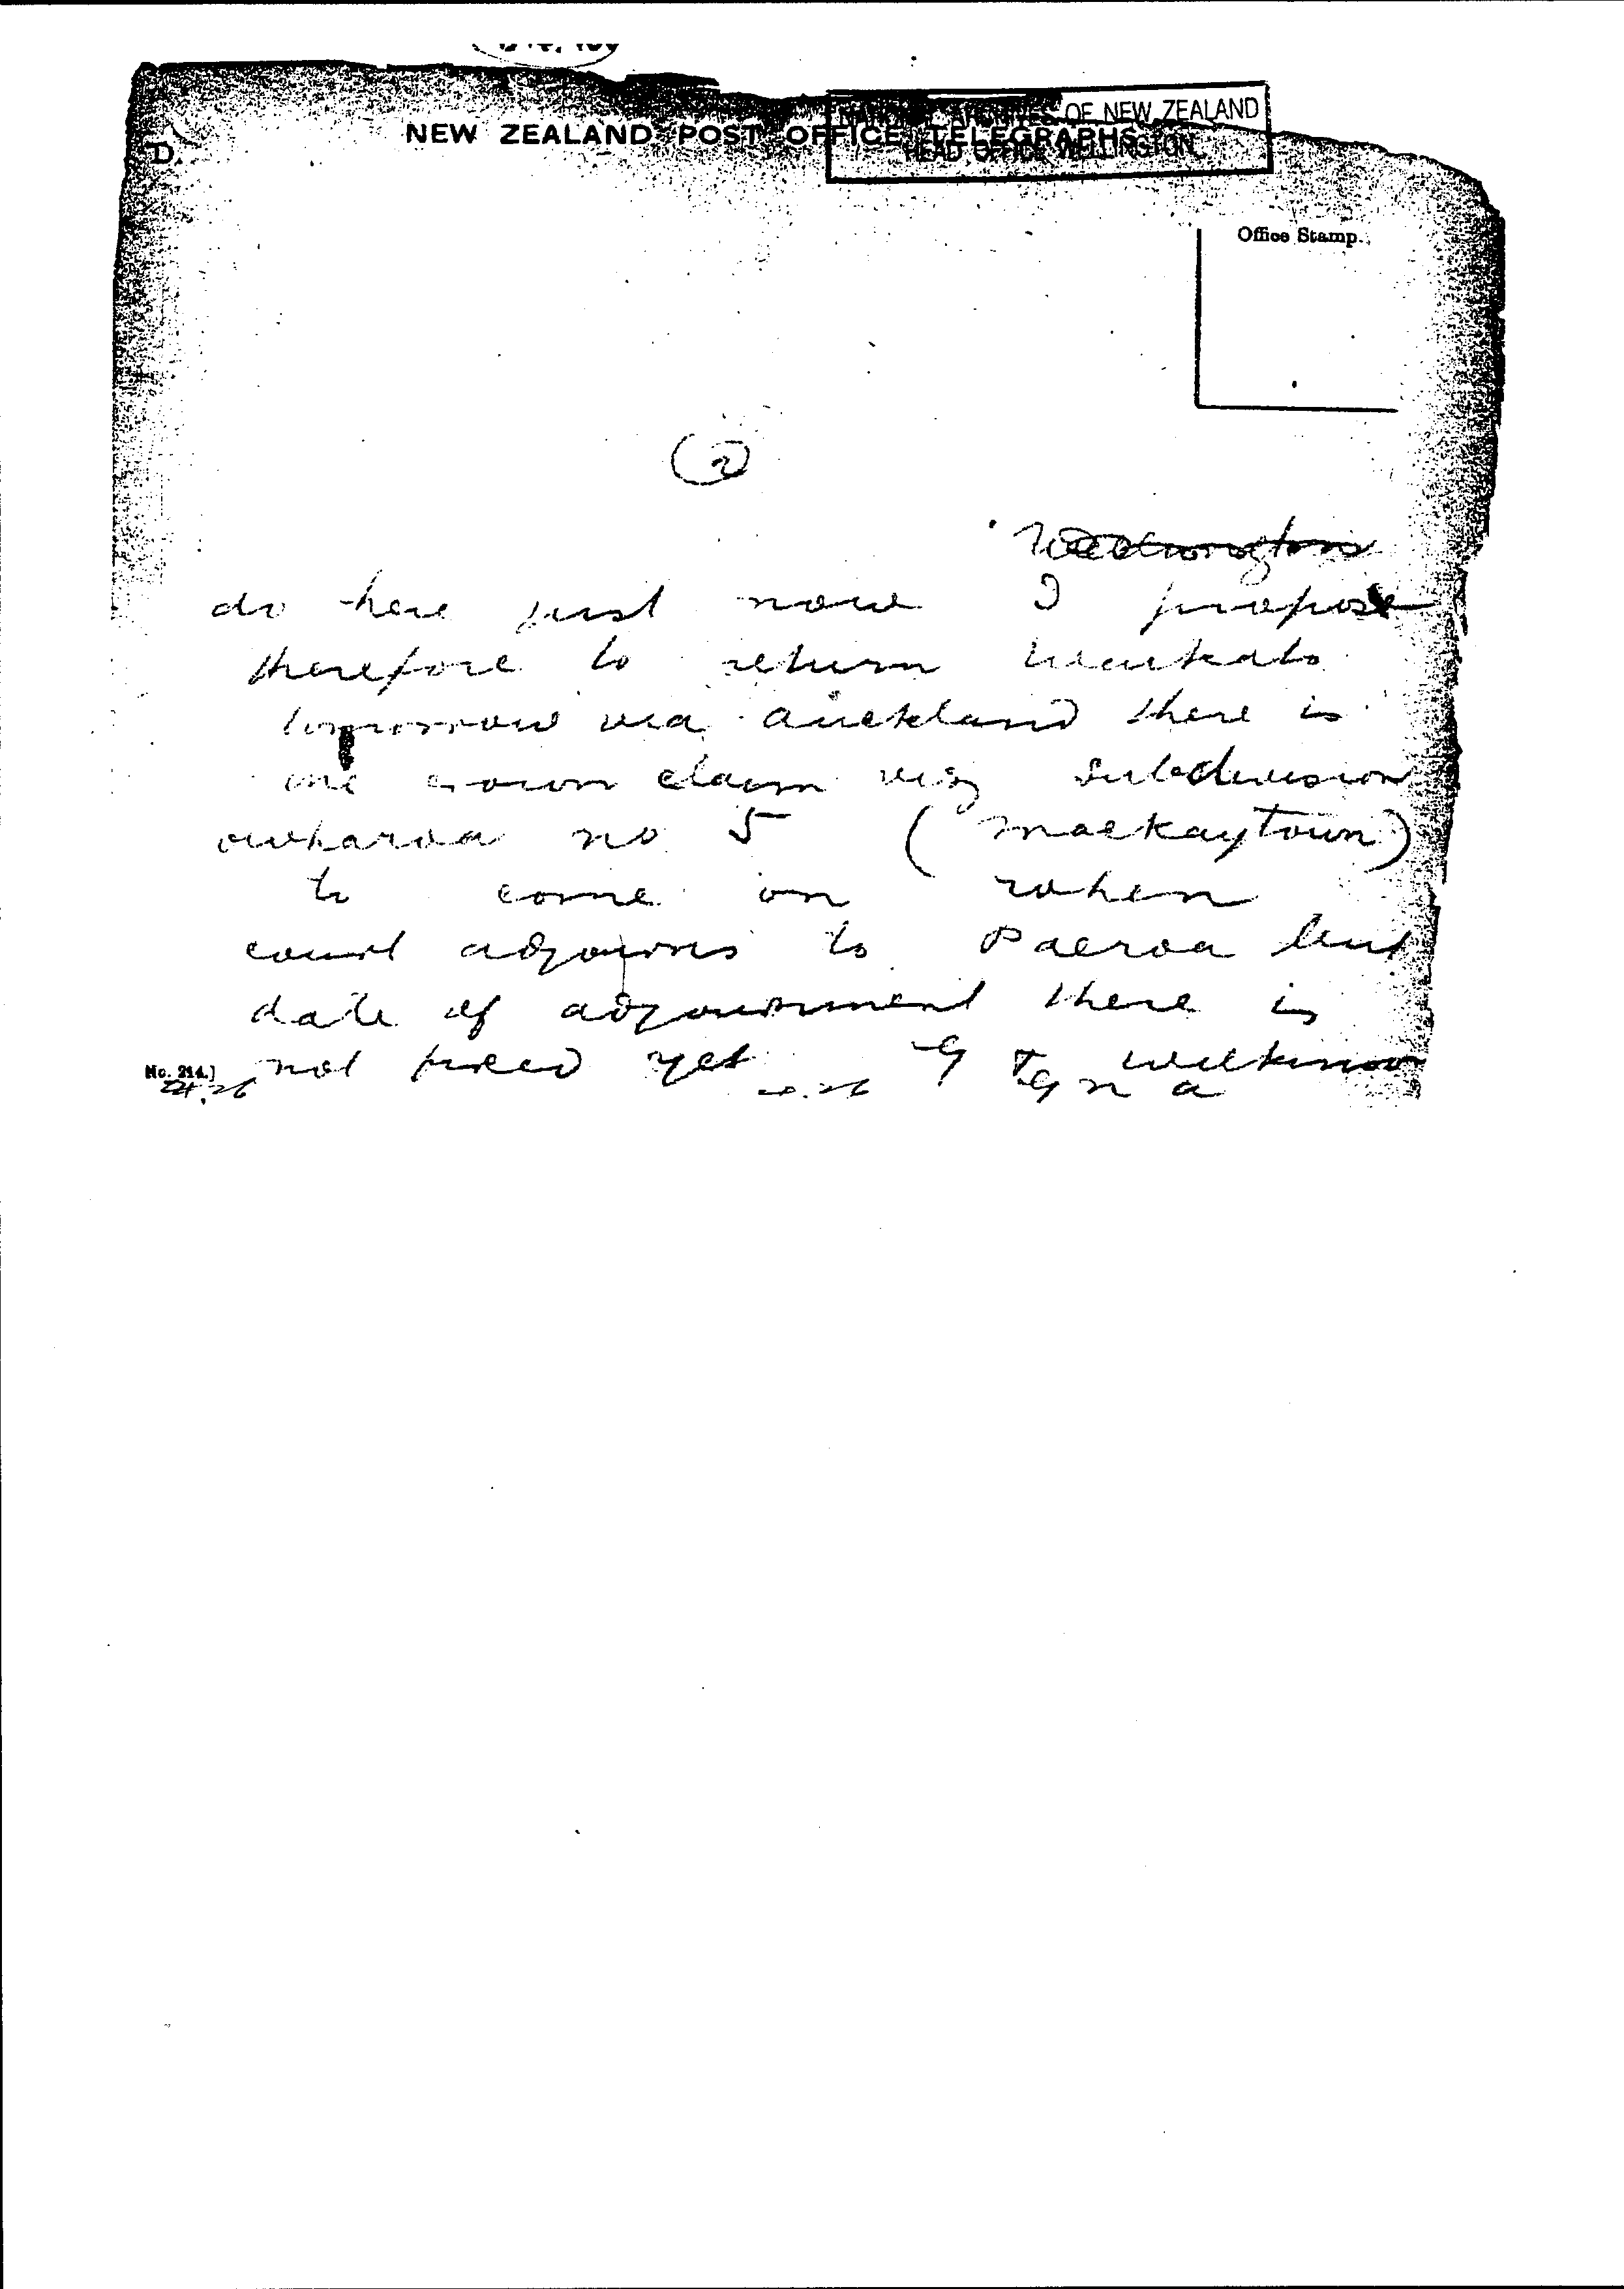 D.
NEW ZEALAND POST OFFICE TELEGRAPHS
NATIONAL ARCHIVES OF NEW ZEALAND
HEAD OFFICE WELLINGTON
Office Stamp.
(2)
Wellington
do here just now I propose
therefore to return waikato
tomorrow via auckland there is
one crown claim viz subdivision
owharoa no 5 (mackaytown)
to come on when
court adjourns to Paeroa but
date of adjournment there is
not fixed yet G T Wilkinson
No. 214.]
G n a